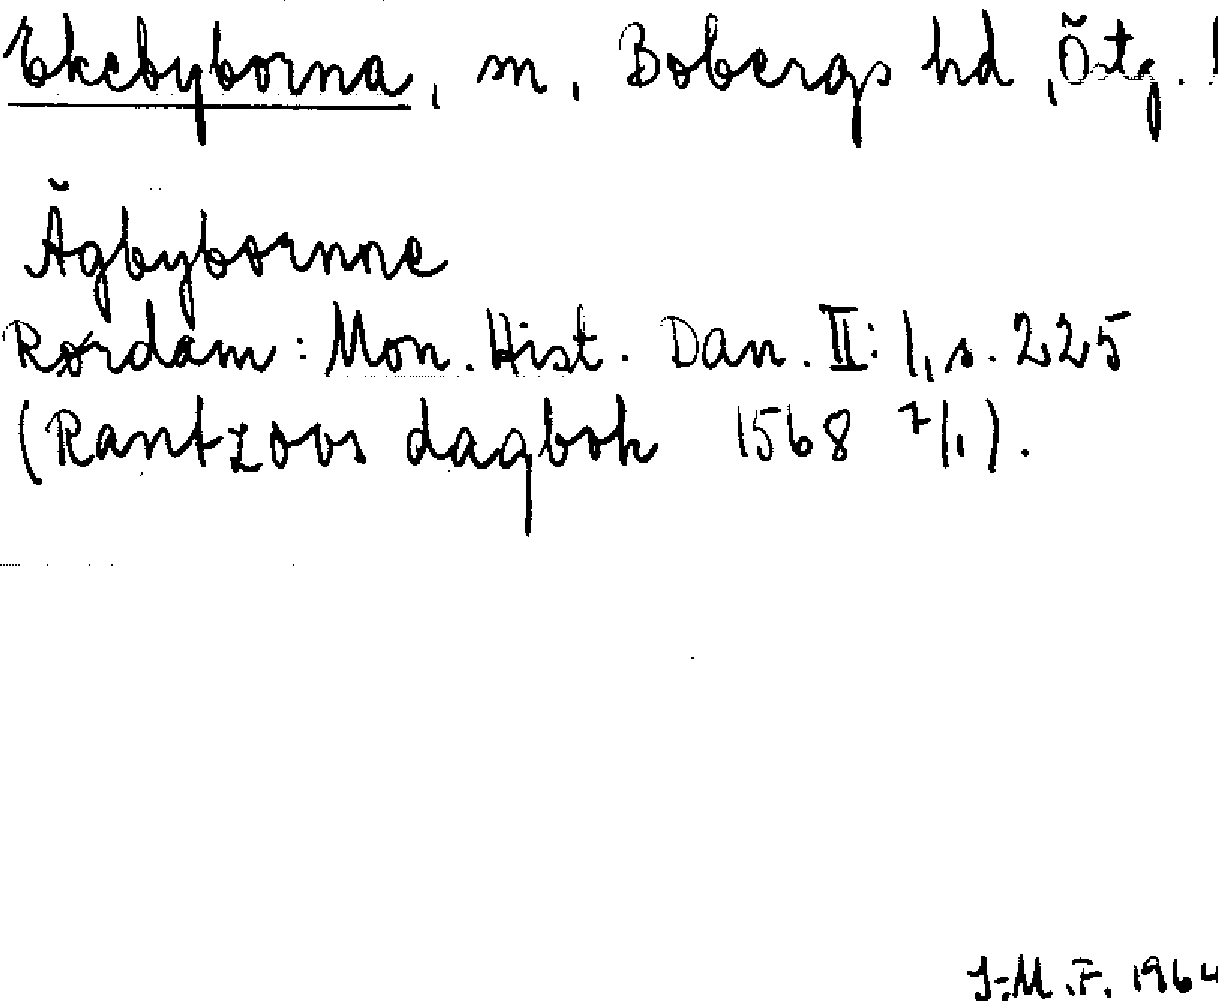 Ekebyborna, sn, Bobergs hd, Östg. !
Ägbybornne
Rørdam: Mon. Hist. Dan. II: 1, s. 225
(Rantzovs dagbok 1568 7/1).
J-M.F. 1964